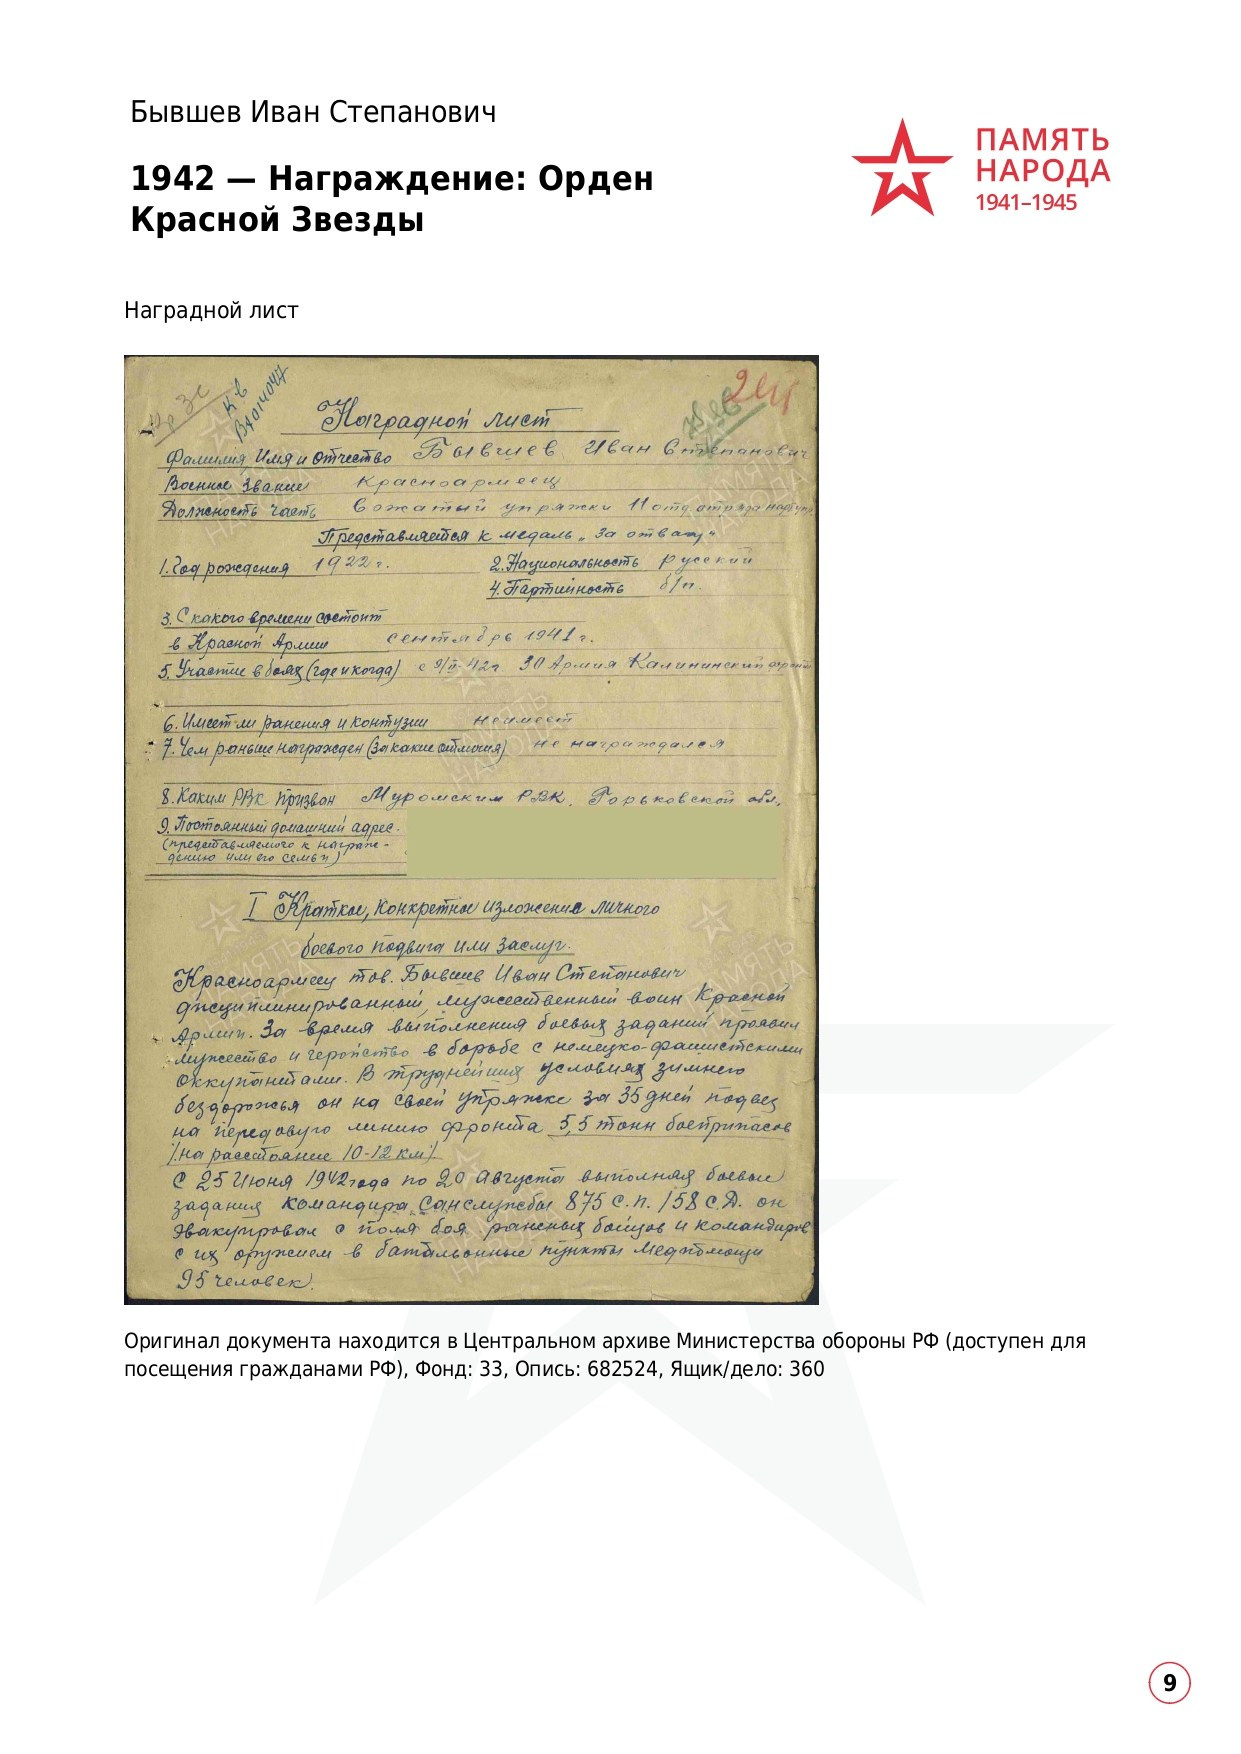 Бывшев Иван Степанович
ПАМЯТЬ
НАРОДА
1941–1945
1942 — Награждение: Орден
Красной Звезды
Наградной лист
Наградной лист
Фамилия, Имя и Отчество Бывшев Иван Степанович
Военное звание красноармеец
Должность часть вожатый упряжки 11 отд. отряда
Представляется к медаль „За отвагу"
1. Год рождения 1922 г. 2. Национальность русский
4. Партийность б/п.
3. С какого времени состоит
в Красной Армии сентябрь 1941 г.
5. Участие в боях (где и когда) с 30 Армия Калининский фронт
6. Имеет-ли ранения и контузии неимеет
7. Чем раньше награжден (За какие отличия) не награждался
8. Каким РВК призван Муромским РВК. Горьковской обл.
9. Постоянный домашний адрес.
(представляемого к награж-
дению или его семьи)
I Краткое, конкретное изложение личного
боевого подвига или заслуг.
Красноармеец тов. Бывшев Иван Степанович
дисциплинированный, мужественный воин Красной
Армии. За время выполнения боевых заданий проявил
мужество и геройство в борьбе с немецко-фашистскими
оккупантами. В труднейших условиях зимнего
бездорожья он на своей упряжке за 35 дней подвез
на передовую линию фронта 5,5 тонн боеприпасов
/на расстояние 10-12 км/.
С 25 Июня 1942 года по 20 Августа выполняя боевые
задания командира Санслужбы 875 с.п. 158 с.д. он
эвакуировал с поля боя раненых бойцов и командиров
с их оружием в батальонные пункты Медпомощи
95 человек.
Оригинал документа находится в Центральном архиве Министерства обороны РФ (доступен для
посещения гражданами РФ), Фонд: 33, Опись: 682524, Ящик/дело: 360
9